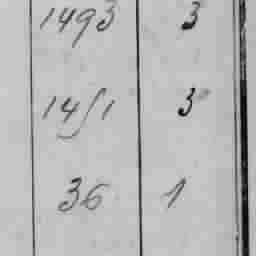 1493 3
1451 3
36 1